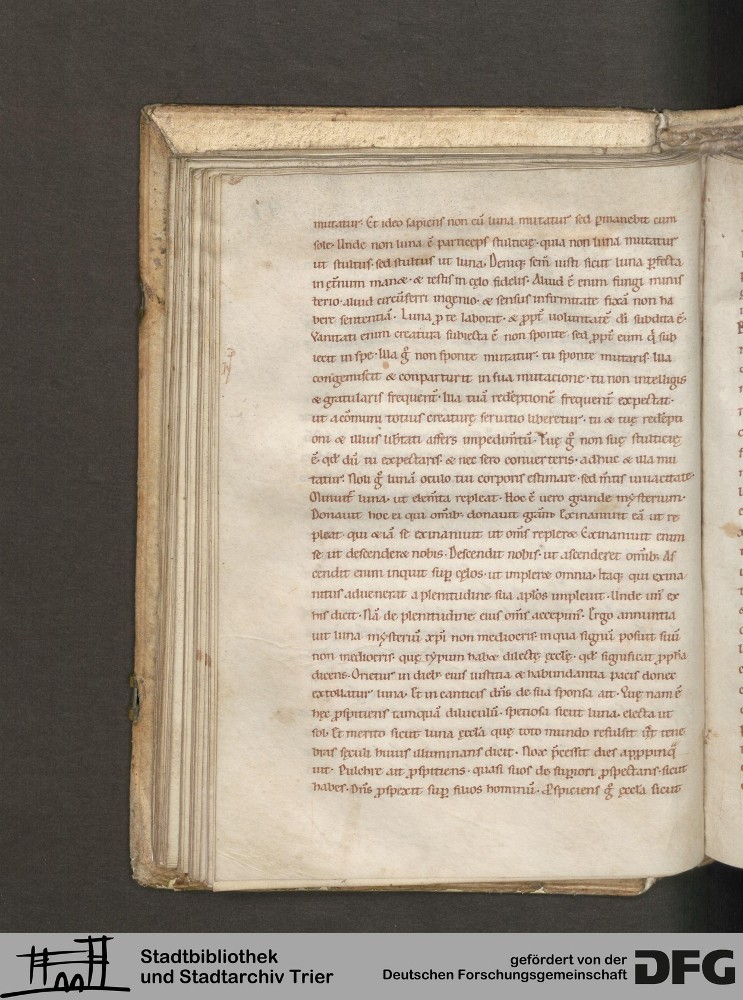 mutatur. Et ideo sapiens non cū luna mutatur sed ꝑmanebit cum
sole. Unde non luna ē particeps stulticię. quia non luna mutatur
ut stultus. sed stultus ut luna. Deniq; sem̄ iusti sicut luna ꝑfecta
in ęt̄num manet. & testis in cęlo fidelis. Aliud ē enim fungi minis
terio. aliud circūferri ingenio. & sensus infirmitate fixā non ha
bere sententiā. Luna ꝓ te laborat. & ꝓpt̄ uoluntatē dī subdita ē.
Vanitati enim creatura subiecta ē non sponte. sed ꝓpt̄ eum q̄ sub
iecit in spe. Illa gͦ non sponte mutatur. tu sponte mutaris. Illa
congemiscit & conparturit in sua mutacione. tu non intelligis
& gratularis frequent̄. Illa tuā redēptionē frequent̄ expectat.
ut a cōmuni totius creaturę seruitio liberetur. tu & tuę redēpti
oni & illius lib̄tati affers impedim̄tū. Tuę gͦ non suę stulticię
ē. qd̄ dū tu expectaris. & nec sero conuerteris. adhuc & illa mu
tatur. Noli gͦ lunā oculo tui corporis estimare. sed m̄tis uiuacitate.
Minuit̄ luna. ut elem̄ta repleat. Hoc ē uero grande mysterium.
Donauit hoc ei qui omīb; donauit gr̄am. Exinaniuit eā ut re
pleat. qui & iā se exinaniuit ut om̄s repleret. Exinaniuit enim
se ut descenderet nobis. Descendit nobis. ut ascenderet omīb; As
cendit enim inquit suꝑ cęlos. ut impleret omnia. Itaq; qui exina
nitus aduenerat a plenitudine sua apl̄os impleuit. Unde un̄ ex
his dicit. Nā de plenitudine eius om̄s accepim̄. Ergo annuntia
uit luna mysteriū xp̄i non mediocris. in qua signū posuit suū
non mediocris. quę typum habet dilectę ęccl̄ę. qd̄ significat ꝓph̄a
dicens. Orietur in dieb; eius iusticia & habundantia pacis donec
extollatur luna. Et in canticis dn̄s de sua sponsa ait. Quę nam ē
hęc ꝓspitiens tamquā diluculū. speciosa sicut luna. electa ut
sol. Et merito sicut luna ęccl̄a quę toto mundo refulsit tene
bras sęculi huius illuminans dicit. Nox p̄cessit dies appꝓpinq̄
uit. Pulchre ait ꝓspitiens. quasi suos de suꝑiori ꝓspectans. sicut
habes. Dn̄s ꝓspexit suꝑ filios hominū. ꝓspiciens gͦ ęccl̄a sicut
Stadtbibliothek
und Stadtarchiv Trier
gefördert von der
Deutschen Forschungsgemeinschaft
DFG